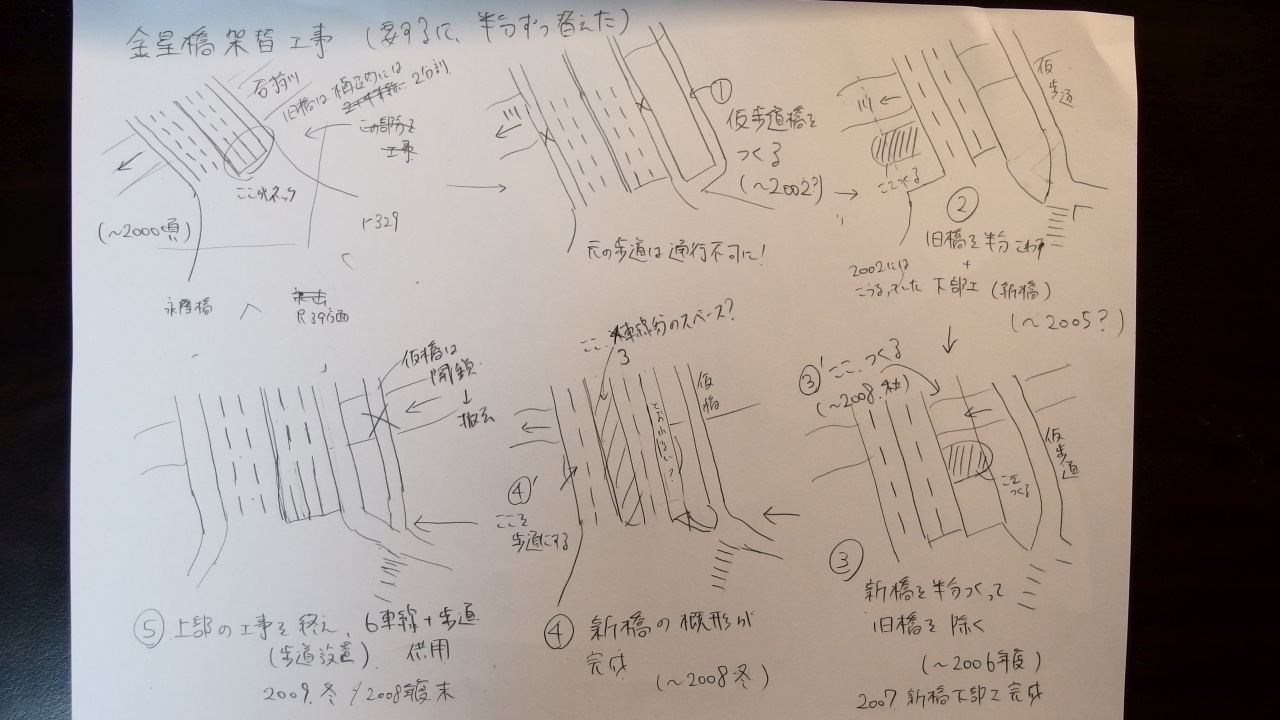 金星橋架替工事 (要するに、半分ずつ替えた)
石狩川
旧橋は 構造的には
2分割
この部分を
工事
ここがネック
(~2000頃)
R329
永隆橋
R39方面
川
①
仮歩道橋を
つくる
(~2002?)
元の歩道は通行不可に!
川
仮歩道
ここつくる
②
旧橋を半分こわす
+
下部工 (新橋)
2002には
こうなってた
(~2005?)
③' ここ、つくる
(~2008.秋)
仮歩道
ここをつくる
③
新橋を半分つくって
旧橋を除く
(~2006年度)
2007. 新橋下部工完成
ここ、車線分のスペース?
3
仮橋
とおれない?
④'
ここを
歩道にする
④ 新橋の概形が
完成
(~2008冬)
仮橋は
閉鎖
↓
撤去
⑤ 上部の工事を終え、6車線+歩道
(歩道設置) 供用
2009.冬 / 2008年度末